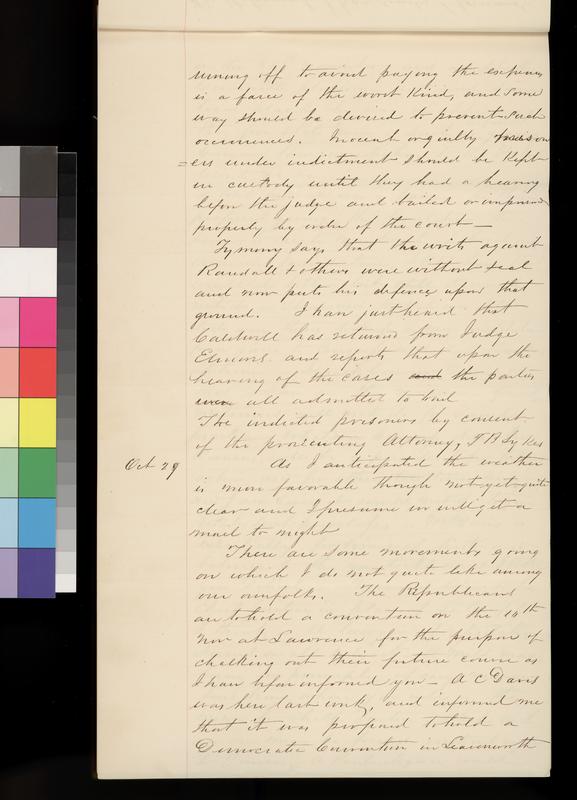 runing off to avoid paying the expenses
is a farce of the worst Kind, and some
way should be devised to prevent such
occurrences. Inocent or guilty prison
=ers under indictment should be Kept
in custody until they had a hearing
before the judge and bailed or imprisoned
properly by order of the court —
Tymony says that the writs against
Randall & others were without seal
and now puts his defence upon that
ground. I have just heard that
Caldwell has returned from Judge
Elmore and reports that upon the
hearing of the cases and the parties
were all admitted to bail
The indicted prisoners by consent
of the prosecuting Attorney, T B Sykes
Oct 29 As I anticipated the weather
is more favorable though not yet quite
clear and I presume we will get a
mail to night
There are some movements going
on which I do not quite like among
our own folks. The Republicans
are to hold a convention on the 10th
Nov at Lawrence for the purpose of
chalking out their future course as
I have before informed you — A C Davis
was here last week, and informed me
that it was proposed to hold a
Democratic Convention in Leavenworth